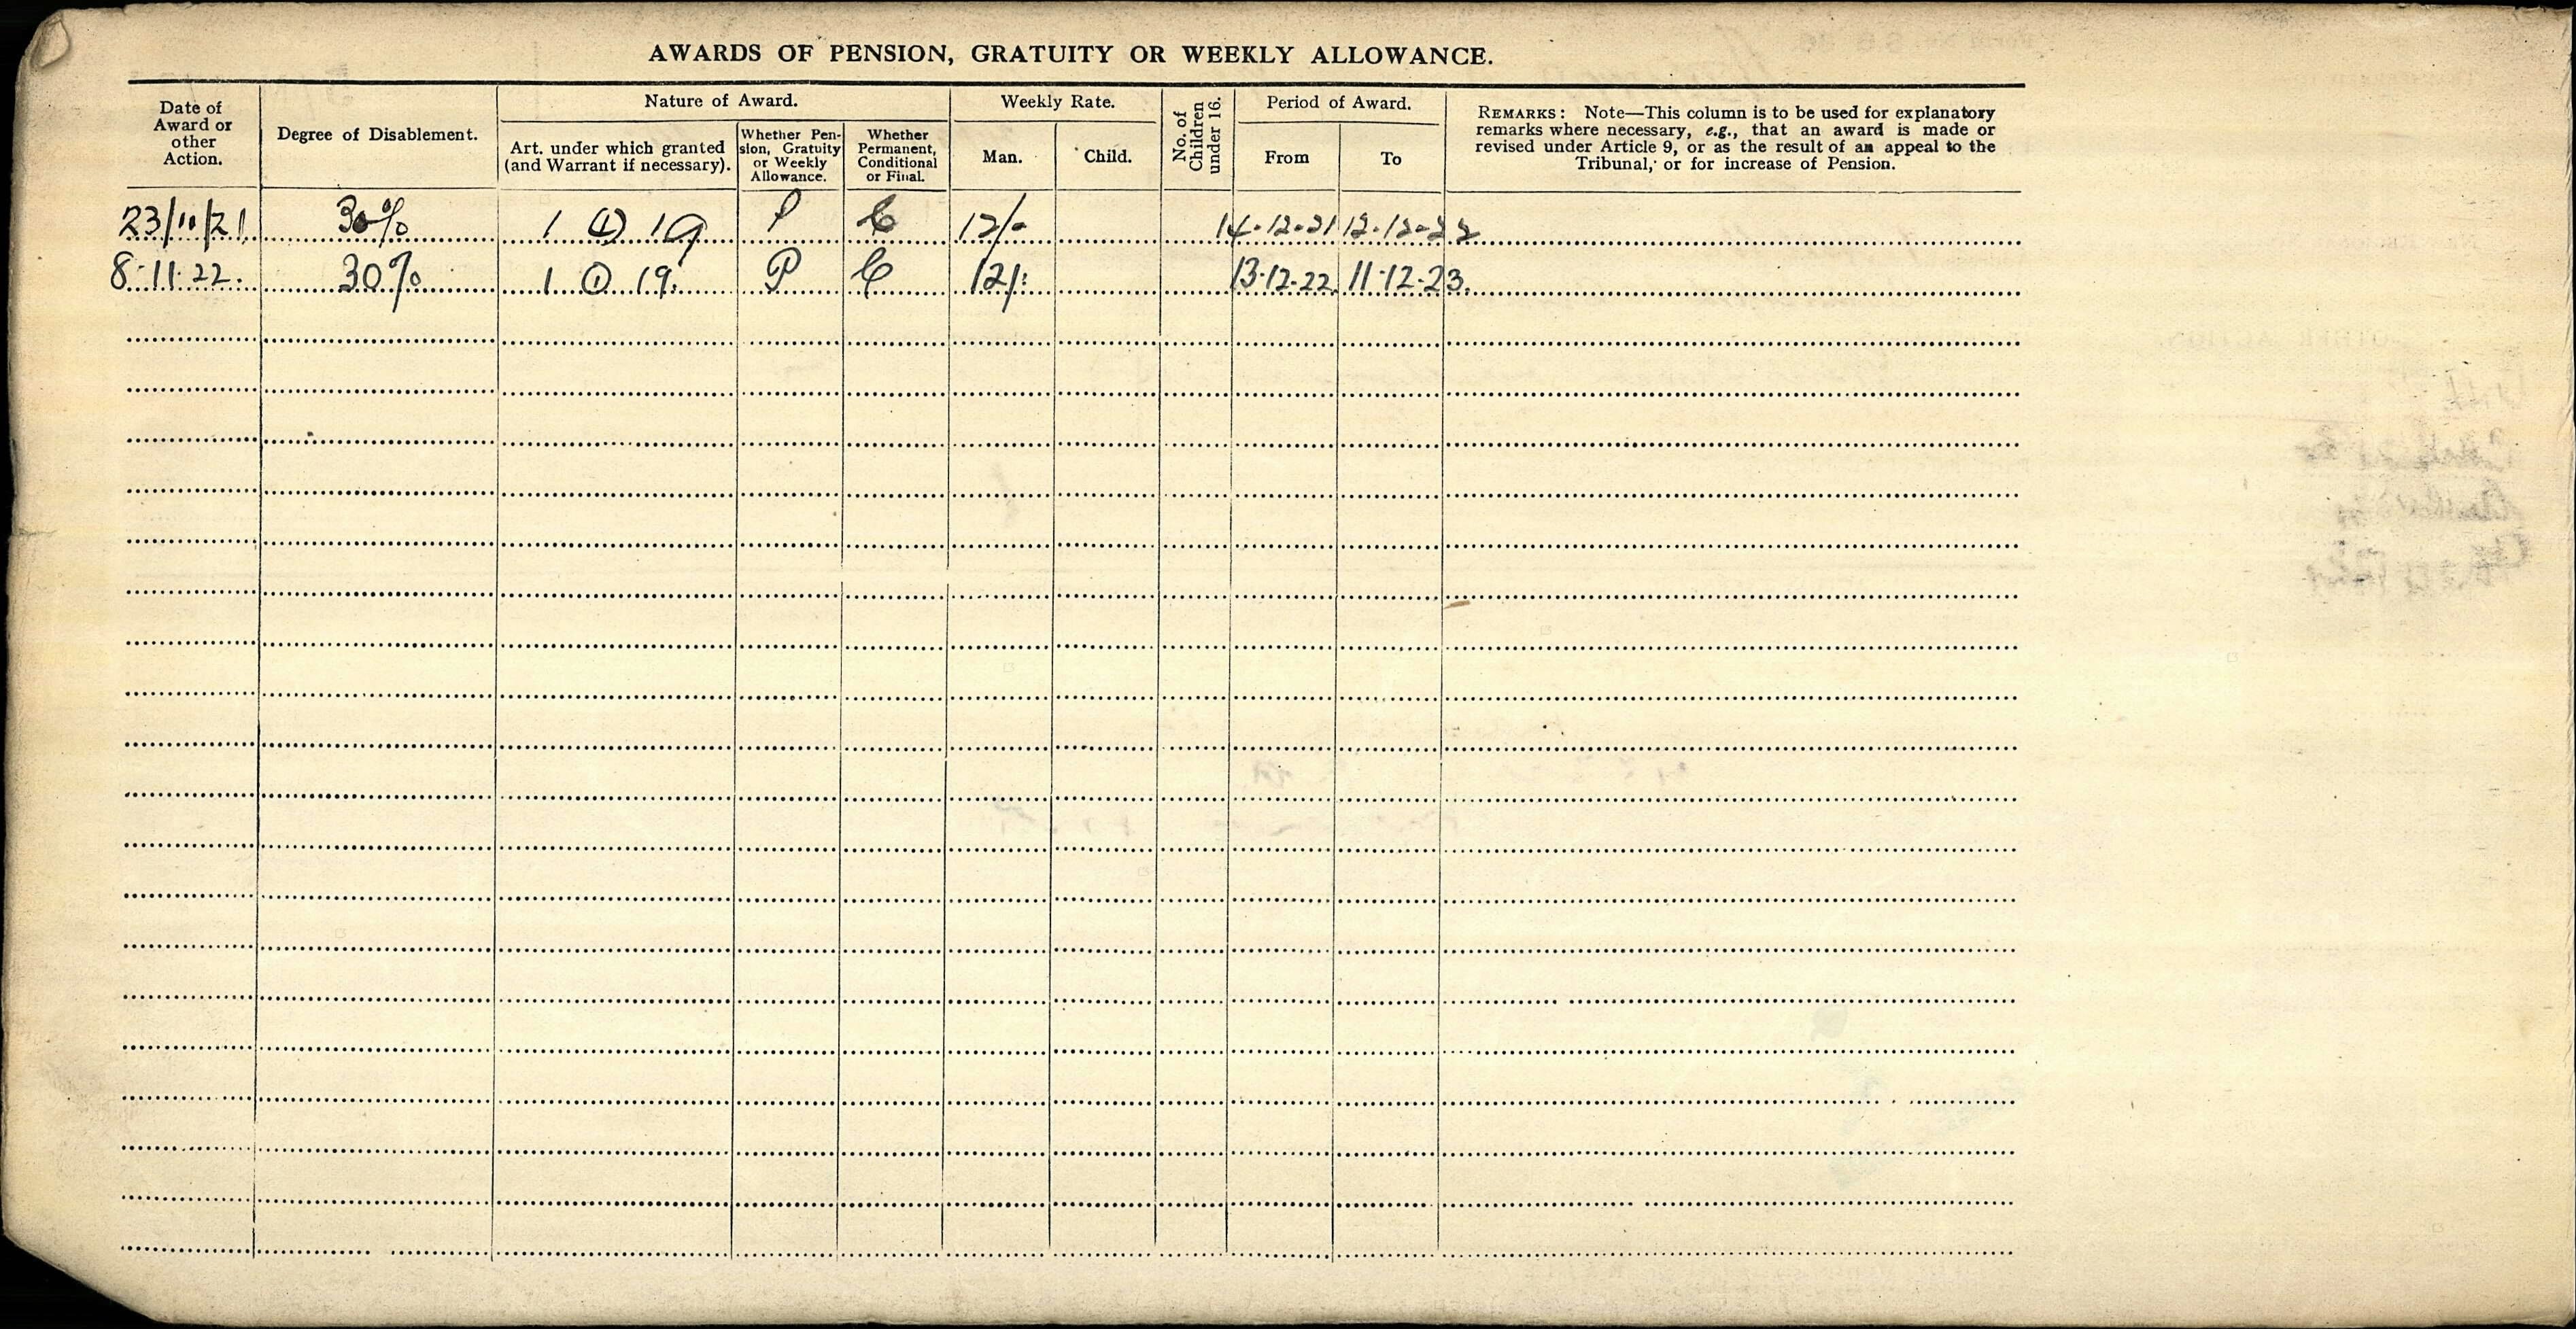 AWARDS OF PENSION, GRATUITY OR WEEKLY ALLOWANCE.
Date of Award or other Action.
Degree of Disablement.
Nature of Award.
Art. under which granted (and Warrant if necessary).
Whether Pension, Gratuity or Weekly Allowance.
Whether Permanent, Conditional or Final.
Weekly Rate.
Man.
Child.
No. of Children under 16.
Period of Award.
From
To
REMARKS: Note—This column is to be used for explanatory
remarks where necessary, e.g., that an award is made or
revised under Article 9, or as the result of an appeal to the
Tribunal, or for increase of Pension.
23/11/21 30% 1 (1) 19 P C 12/- 14.12.21 12.12.22
8.11.22. 30% 1 (1) 19. P C 12/: 13.12.22 11.12.23.